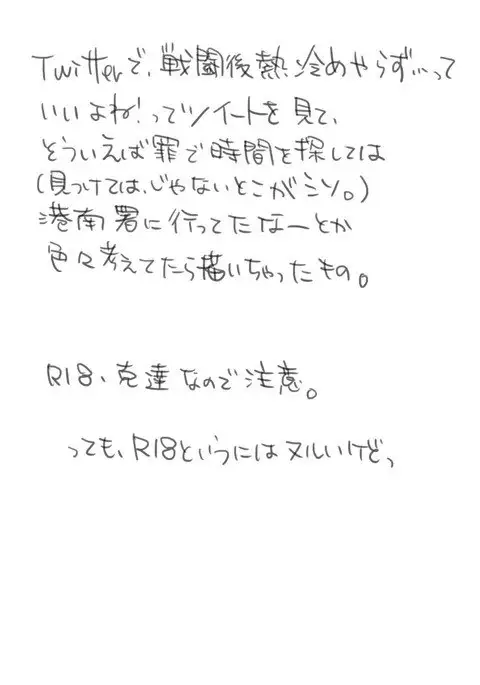 Twitterで、戦闘後熱冷めやらず…って
いいよね！ってツイートを見て、
そういえば罪で時間を探しては
(見つけては、じゃないとこがミソ。)
港南署に行ってたなーとか
色々考えてたら描いちゃったもの。
R18、克達なので注意。
っても、R18というにはヌルいけどっ